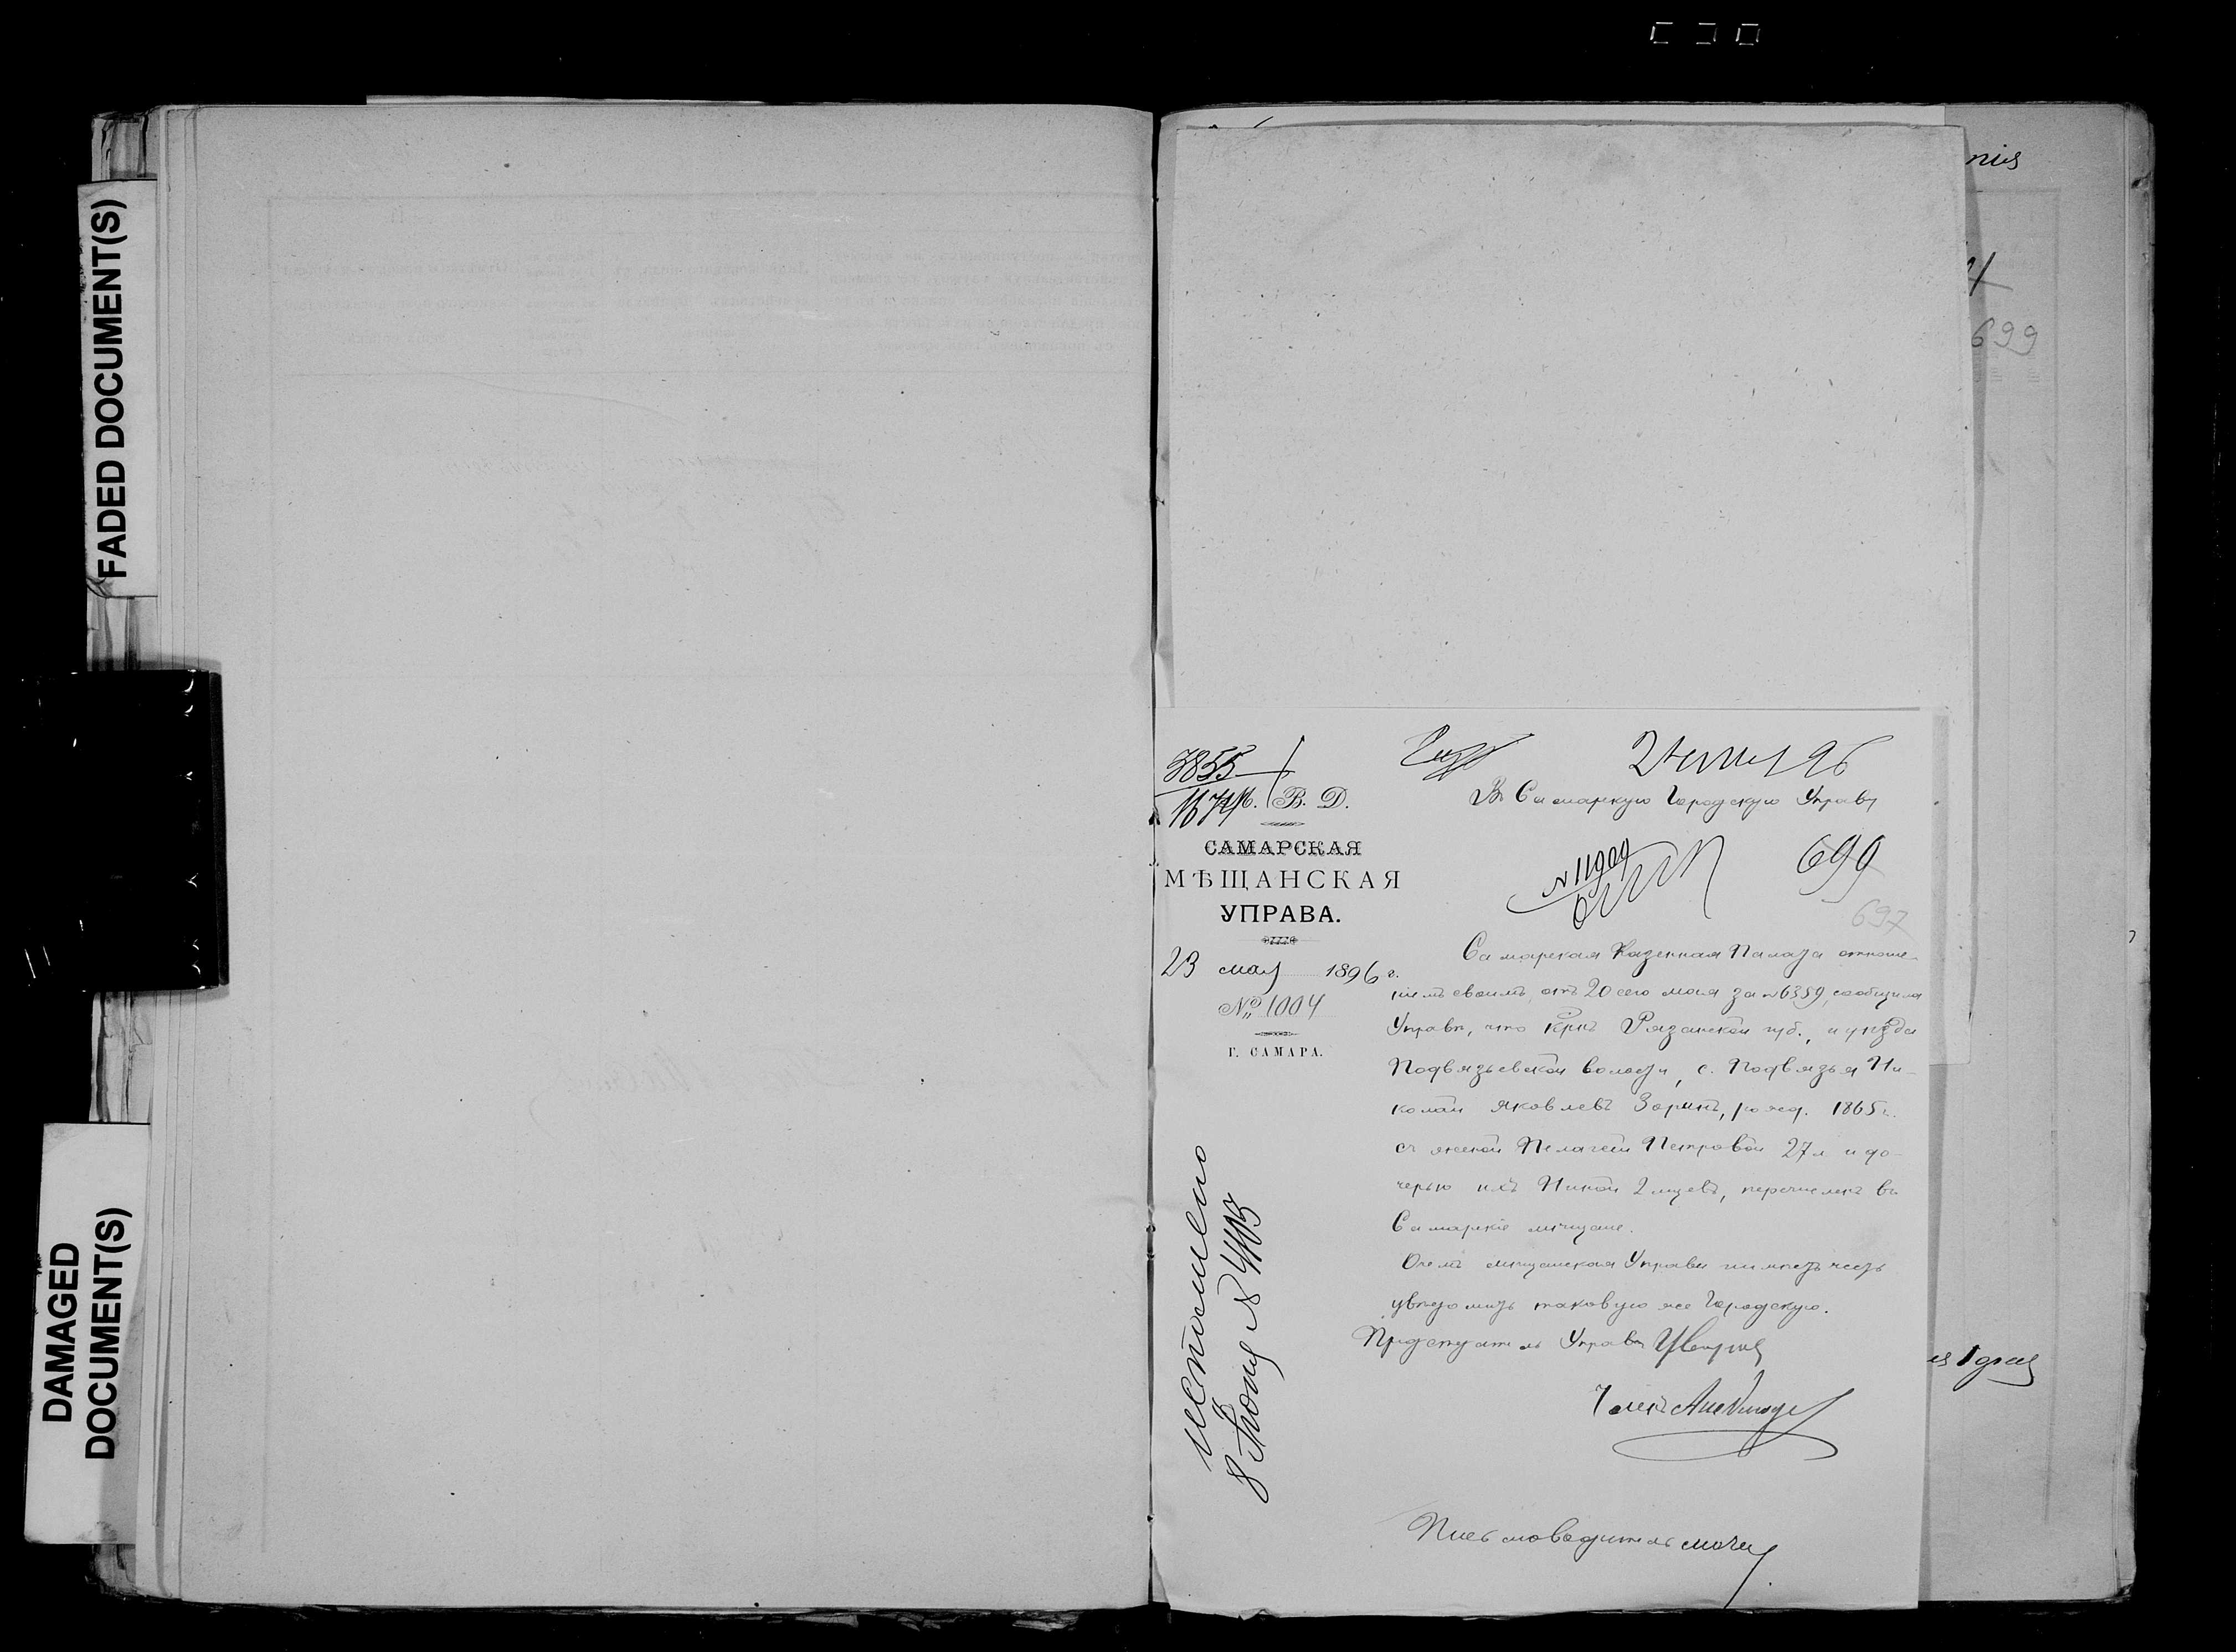 FADED DOCUMENT(S)
DAMAGED
DOCUMENT(S)
699
3855
В. Д.
САМАРСКАЯ
МѢЩАНСКАЯ
УПРАВА.
23 мая 1896 г.
№ 1004
Г. САМАРА.
96
Въ Самарскую Городскую Управу
№ 11909
699
697
Самарская Казенная Палата отноше-
ніемъ своимъ, отъ 20 сего мая за № 6359, сообщила
Управѣ, что крнъ Рязанской губ., и уѣзда
Подвязьевской волости, с. Подвязья Ни-
колай Яковлевъ Зоринъ, рожд. 1865 г.
съ женой Пелагеей Петровой 27 л. и до-
черью ихъ Ниной 2 мцевъ, перечисленъ въ
Самарскіе мѣщане.
О чемъ мѣщанская Управа имѣетъ честь
увѣдомить таковую же Городскую.
Предсѣдатель Управы
Членъ
Письмоводитель
исполнено
8 Іюня № 4105